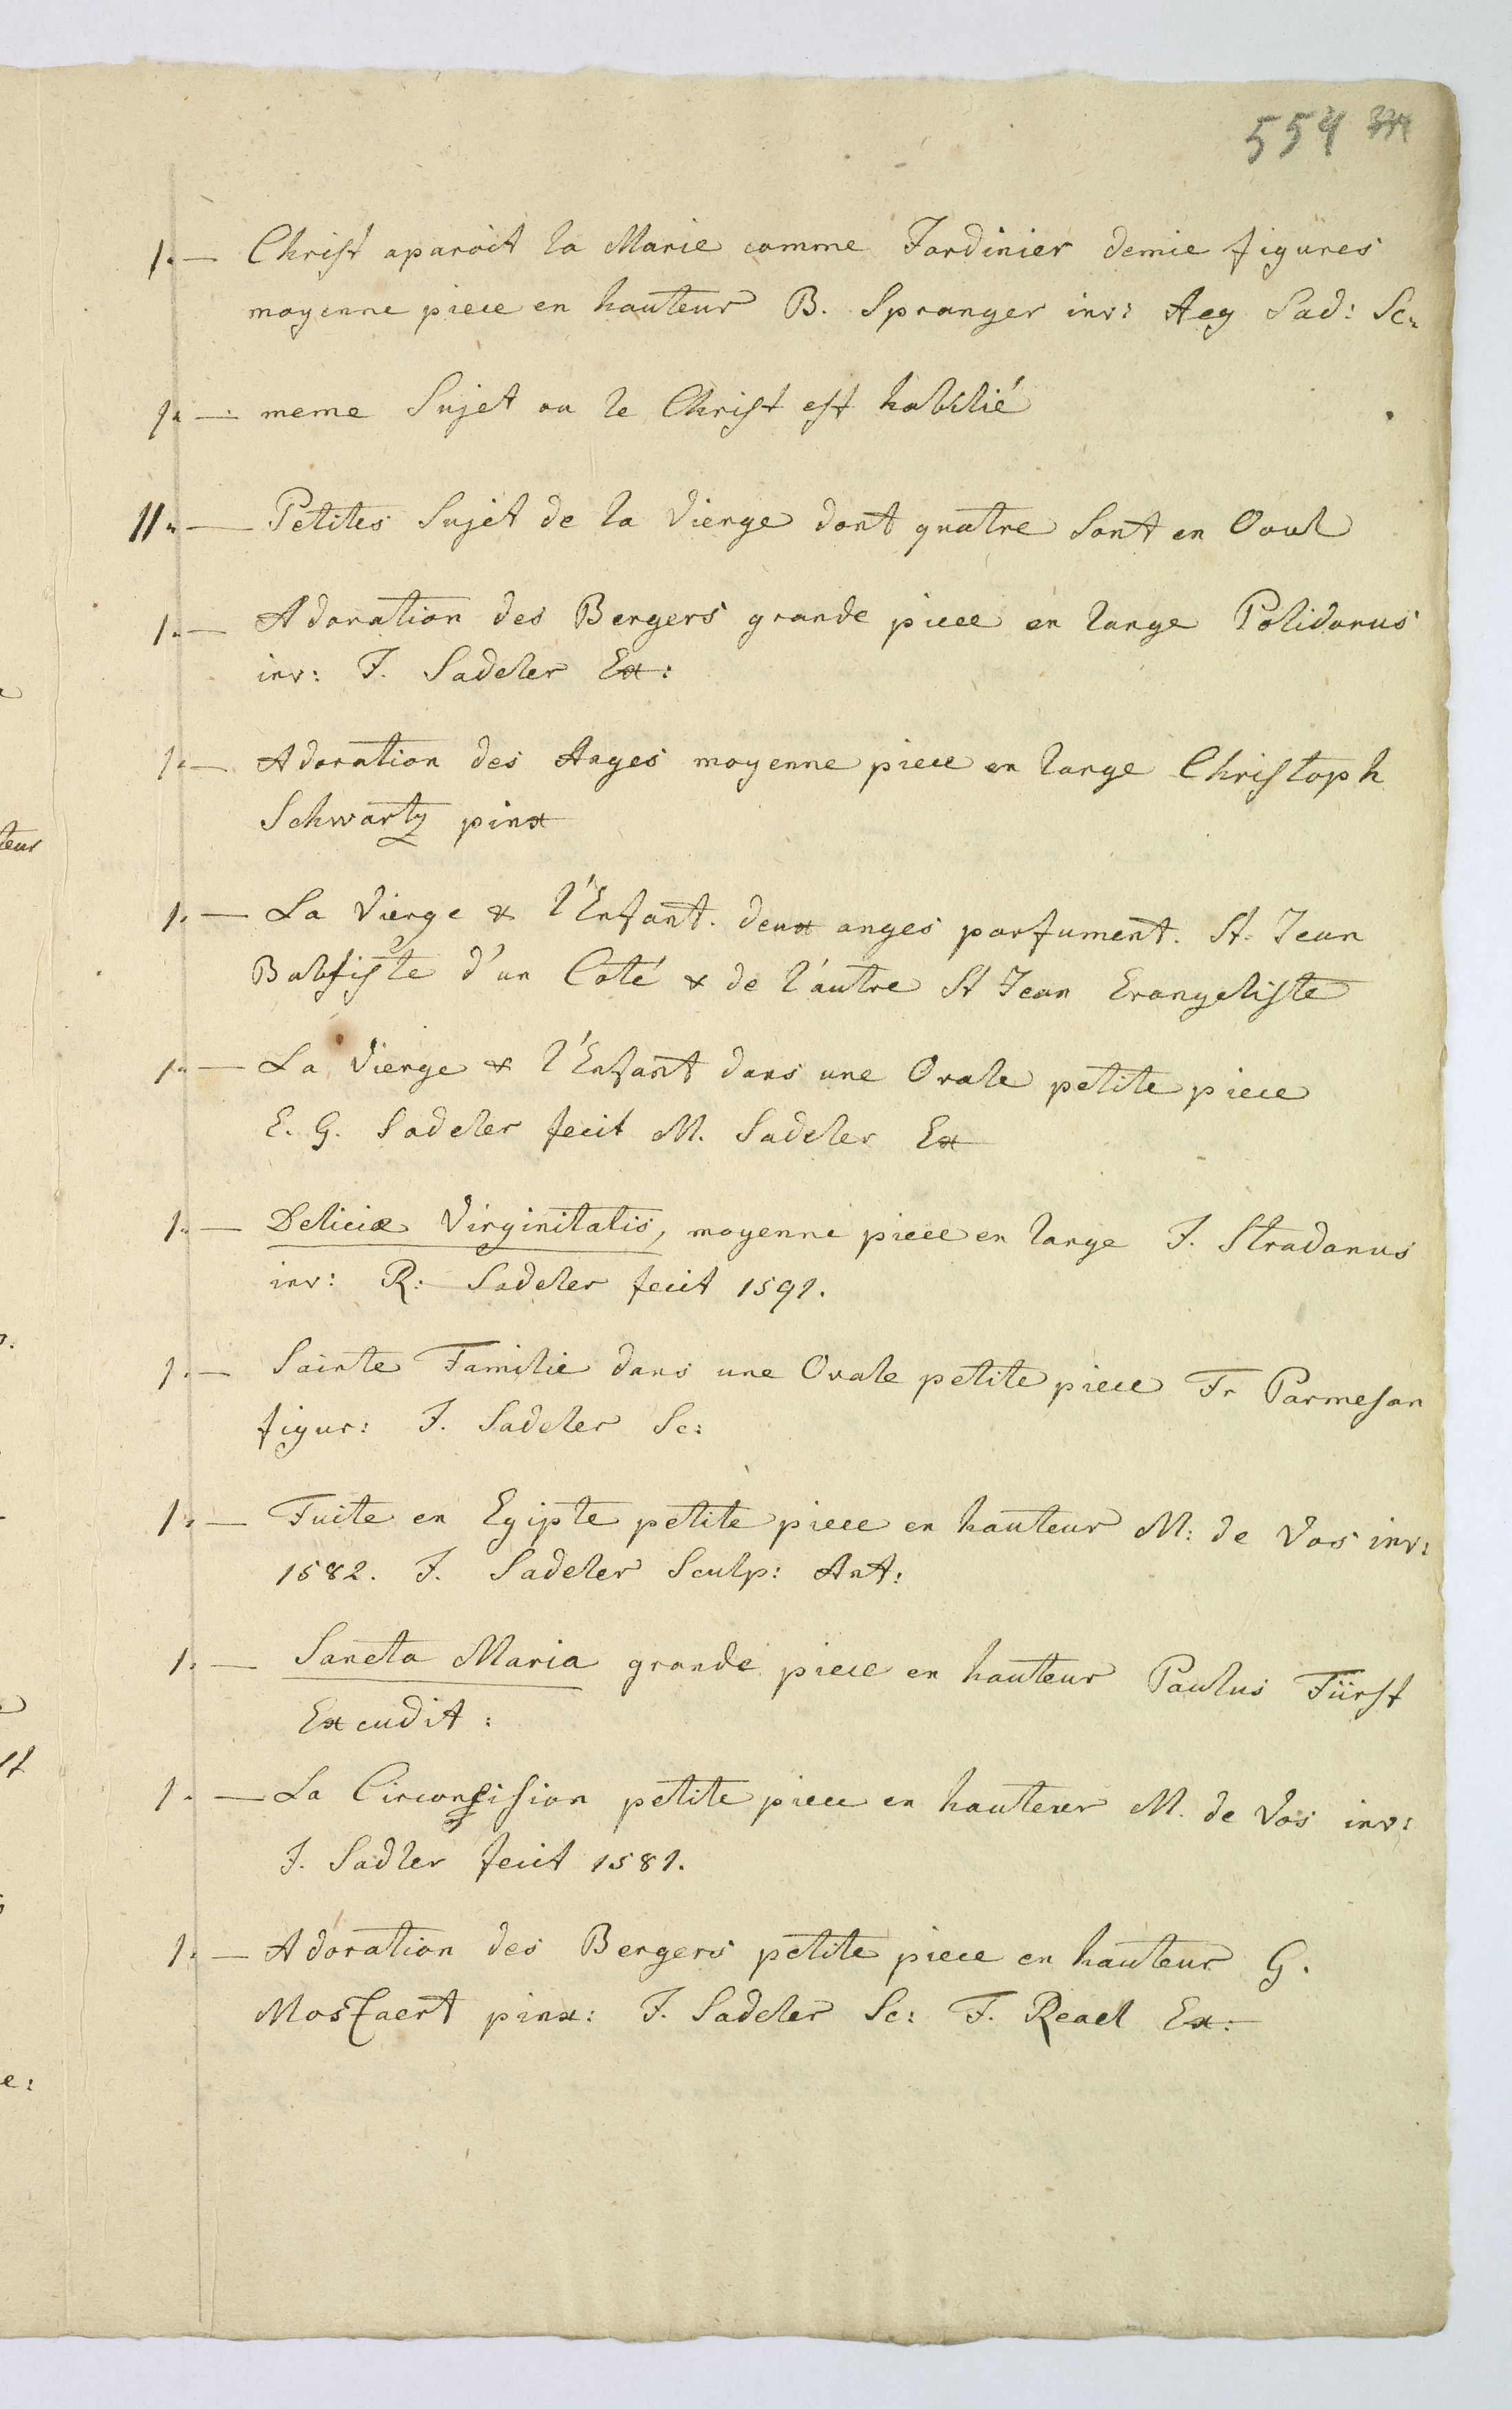 554
1. — Christ aparoit la Marie comme Jardinier demie figures
moyenne piece en hauteur B. Spranger inv: Aeg Sad: Sc:
1. — meme Sujet ou le Christ est habilié
11. — Petites Sujet de la Vierge dont quatre Sont en Oval
1. — Adoration des Bergers grande piece en large Polidorus
inv: J. Sadeler Ex:
1. — Adoration des Anges moyenne piece en large Christoph
Schwartz pinx
1. — La Vierge & l'Enfant. deux anges parfument. St. Jean
Babtiste d'un Coté & de l'autre St Jean Evangeliste
1. — La Vierge & l'Enfant dans une Ovale petite piece
E. G. Sadeler fecit M. Sadeler Ex
1. — Deliciæ Virginitatis, moyenne piece en large J. Stradanus
inv: R: Sadeler fecit 1591.
1. — Sainte Familie dans une Ovale petite piece Fr Parmesan
figur: J. Sadeler Sc:
1. — Fuite en Egipte petite piece en hauteur M: de Vos inv:
1582. J. Sadeler Sculp: Ant:
1. — Sancta Maria grande piece en hauteur Paulus Fürst
Excudit:
1. — La Circoncision petite piece en hauteur M. de Vos inv:
J. Sadler fecit 1581.
1. — Adoration des Bergers petite piece en hauteur G.
Mostaert pinx: J. Sadeler Sc: F. Reael Ex: